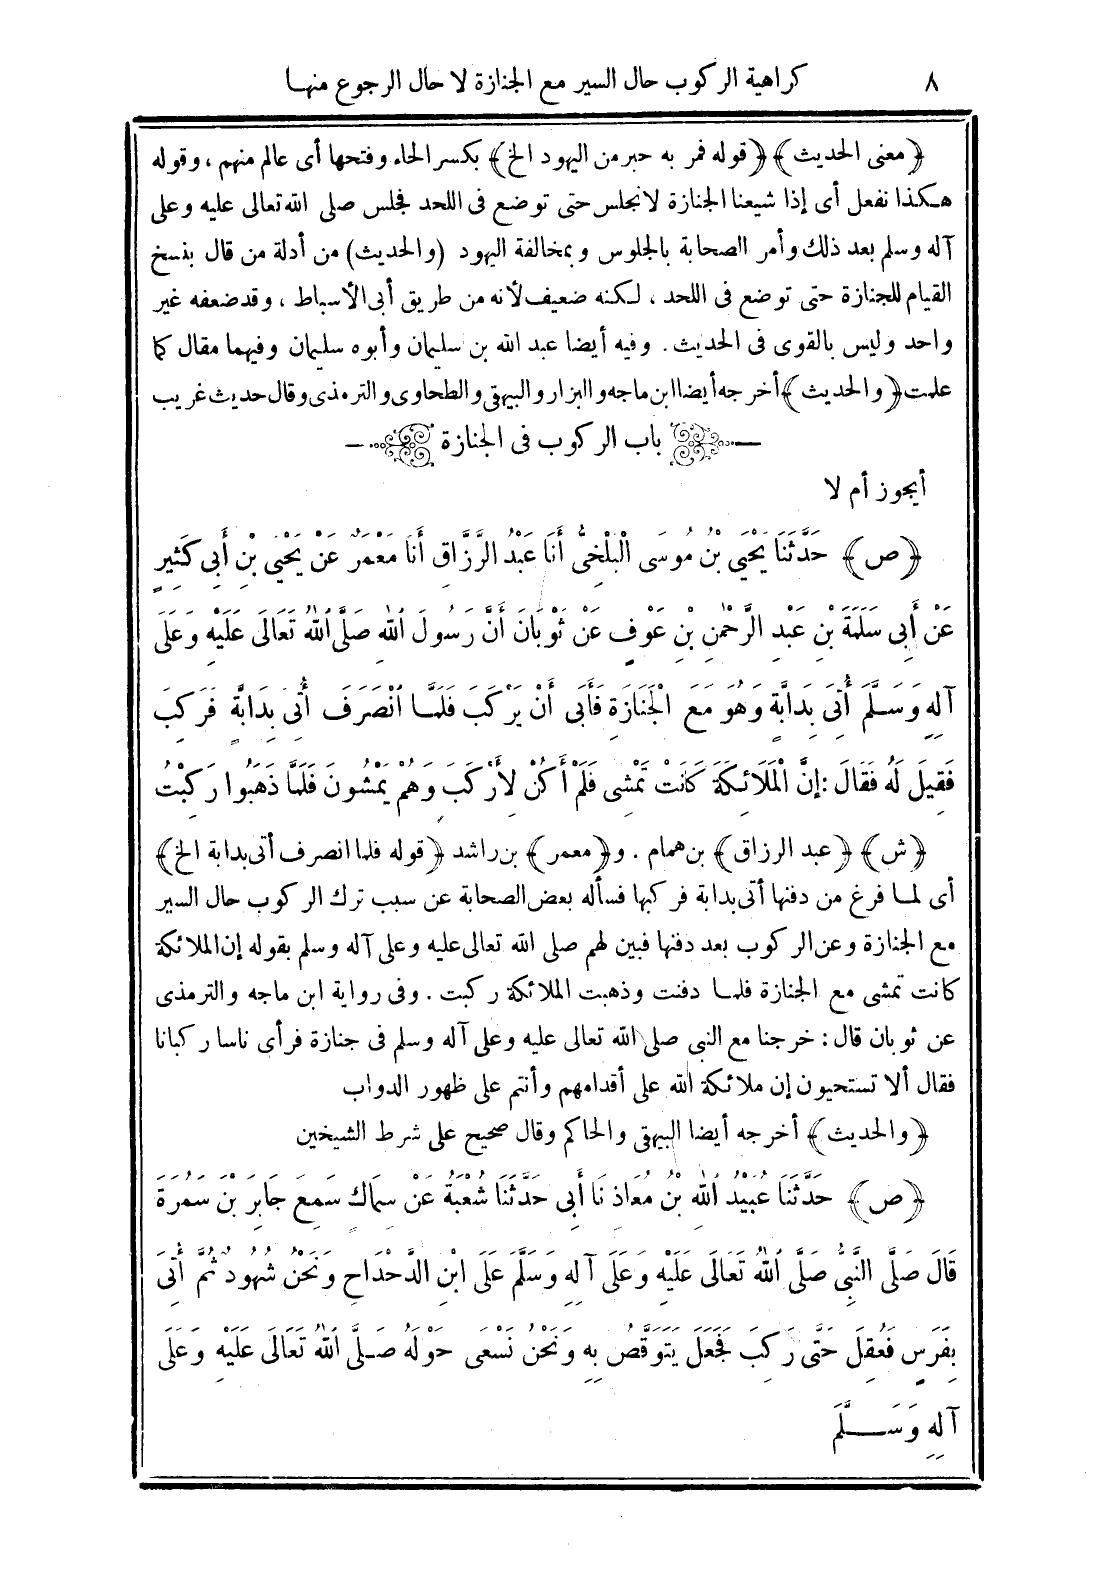 ٨ كراهية الركوب حال السير مع الجنازة لا حال الرجوع منها
﴿معنى الحديث﴾ ﴿قوله فمر به حبر من اليهود الخ﴾ بكسر الحاء وفتحها أى عالم منهم ، وقوله
هكذا نفعل أى إذا شيعنا الجنازة لانجلس حتى توضع فى اللحد فجلس صلى الله تعالى عليه وعلى
آله وسلم بعد ذلك وأمر الصحابة بالجلوس وبمخالفة اليهود (والحديث) من أدلة من قال بنسخ
القيام للجنازة حتى توضع فى اللحد ، لكنه ضعيف لأنه من طريق أبى الأسباط ، وقد ضعفه غير
واحد وليس بالقوى فى الحديث . وفيه أيضا عبد الله بن سليمان وأبوه سليمان وفيهما مقال كما
علمت ﴿والحديث﴾ أخرجه أيضا ابن ماجه والبزار والبيهقى والطحاوى والترمذى وقال حديث غريب
باب الركوب فى الجنازة
أيجوز أم لا
﴿ص﴾ حَدَّثَنَا يَحْيَى بْنُ مُوسَى الْبَلْخِىُّ أَنَا عَبْدُ الرَّزَّاقِ أَنَا مَعْمَرٌ عَنْ يَحْيَى بْنِ أَبِى كَثِيرٍ
عَنْ أَبِى سَلَمَةَ بْنِ عَبْدِ الرَّحْمٰنِ بْنِ عَوْفٍ عَنْ ثَوْبَانَ أَنَّ رَسُولَ اللهِ صَلَّى اللهُ تَعَالَى عَلَيْهِ وَعَلَى
آلِهِ وَسَلَّمَ أُتِىَ بِدَابَّةٍ وَهُوَ مَعَ الْجَنَازَةِ فَأَبَى أَنْ يَرْكَبَ فَلَمَّا انْصَرَفَ أُتِىَ بِدَابَّةٍ فَرَكِبَ
فَقِيلَ لَهُ فَقَالَ : إِنَّ الْمَلَائِكَةَ كَانَتْ تَمْشِى فَلَمْ أَكُنْ لِأَرْكَبَ وَهُمْ يَمْشُونَ فَلَمَّا ذَهَبُوا رَكِبْتُ
﴿ش﴾ ﴿عبد الرزاق﴾ بن همام . و﴿معمر﴾ بن راشد ﴿قوله فلما انصرف أتى بدابة الخ﴾
أى لما فرغ من دفنها أتى بدابة فركبها فسأله بعض الصحابة عن سبب ترك الركوب حال السير
مع الجنازة وعن الركوب بعد دفنها فبين لهم صلى الله تعالى عليه وعلى آله وسلم بقوله إن الملائكة
كانت تمشى مع الجنازة فلما دفنت وذهبت الملائكة ركبت . وفى رواية ابن ماجه والترمذى
عن ثوبان قال : خرجنا مع النبى صلى الله تعالى عليه وعلى آله وسلم فى جنازة فرأى ناسا ركبانا
فقال ألا تستحيون إن ملائكة الله على أقدامهم وأنتم على ظهور الدواب
﴿والحديث﴾ أخرجه أيضا البيهقى والحاكم وقال صحيح على شرط الشيخين
﴿ص﴾ حَدَّثَنَا عُبَيْدُ اللهِ بْنُ مُعَاذٍ نَا أَبِى حَدَّثَنَا شُعْبَةُ عَنْ سِمَاكٍ سَمِعَ جَابِرَ بْنَ سَمُرَةَ
قَالَ صَلَّى النَّبِىُّ صَلَّى اللهُ تَعَالَى عَلَيْهِ وَعَلَى آلِهِ وَسَلَّمَ عَلَى ابْنِ الدَّحْدَاحِ وَنَحْنُ شُهُودٌ ثُمَّ أُتِىَ
بِفَرَسٍ فَعُقِلَ حَتَّى رَكِبَ فَجَعَلَ يَتَوَقَّصُ بِهِ وَنَحْنُ نَسْعَى حَوْلَهُ صَلَّى اللهُ تَعَالَى عَلَيْهِ وَعَلَى
آلِهِ وَسَلَّمَ